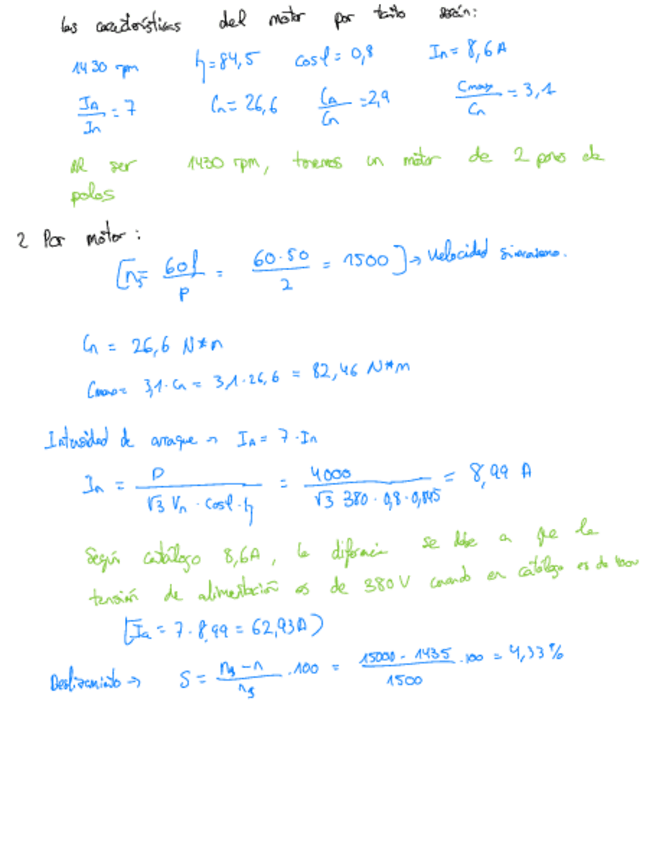 Las características del motor por tanto serán:
1430 rpm η=84,5 cosφ=0,8 In=8,6A
IA/In=7 Cn=26,6 CA/Cn=2,9 Cmax/Cn=3,1
Al ser 1430 rpm, tenemos un motor de 2 pares de
polos
2 Por motor:
[ns= 60f/p = 60·50/2 = 1500]→ Velocidad sincronismo.
Cn = 26,6 N*m
Cmax= 3,1·Cn = 3,1·26,6 = 82,46 N*m
Intensidad de arranque → IA= 7·In
In = P/(√3 Vn·cosφ·η) = 4000/(√3 380·0,8·0,845) = 8,99 A
Según catálogo 8,6A, la diferencia se debe a que la
tensión de alimentación es de 380V cuando en catálogo es de 400V
[Ia = 7·8,99 = 62,93A)
Deslizamiento → S = (ns-n)/ns ·100 = (15000-1435)/1500 ·100 = 4,33%